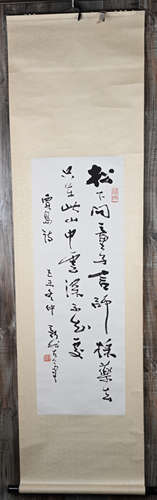 松下問童子言師採藥去
只在此山中雲深不知處
賈島詩